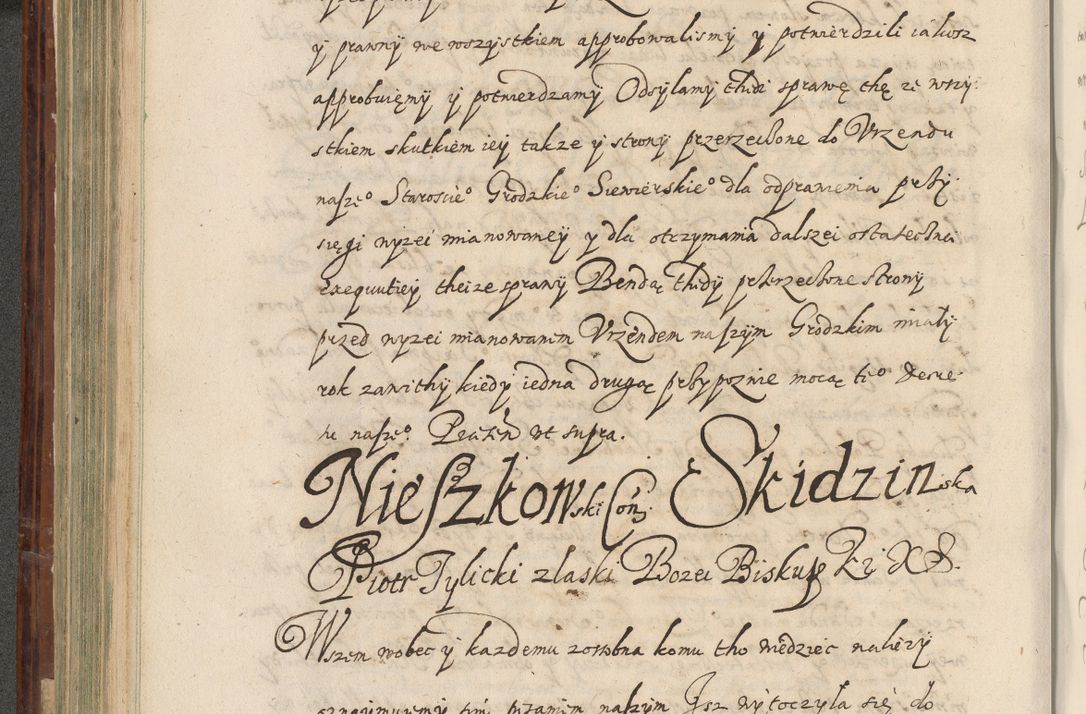 y prawny we wszystkiem approbowalismy y potwierdzili iakosz
approbuięmy y potwierdzamy Odsyłamy thedi sprawę thę ze wszy
stkiem skutkiem iey takze y strony przerzeczone do Vrzendu
naszeº Staroscieº Grodzkieº Siewierskieº dla odprawienia przy
sięgi wyzei mianowaney y dla otrzymania dalszei ostateczney
exequutiey theize sprawy Bendą thedy przerzeczone strony
przed wyzei mianowanem Vrzendem naszym Grodzkim miały
rok zawithy kiedy iedna drugą przypoznie mocą teº Decre
tu naszeº. Præsen̄ ut supra.
Nieszkowski Con̄. Skidzinska
Piotr Tylicki z laski Bozei Biskup K: X S.
Wszem wobec y kazdemu zosobna komu tho wiedziec nalezy
oznajmuiemy tim pisaniem naszym Isz wytoczyla się do